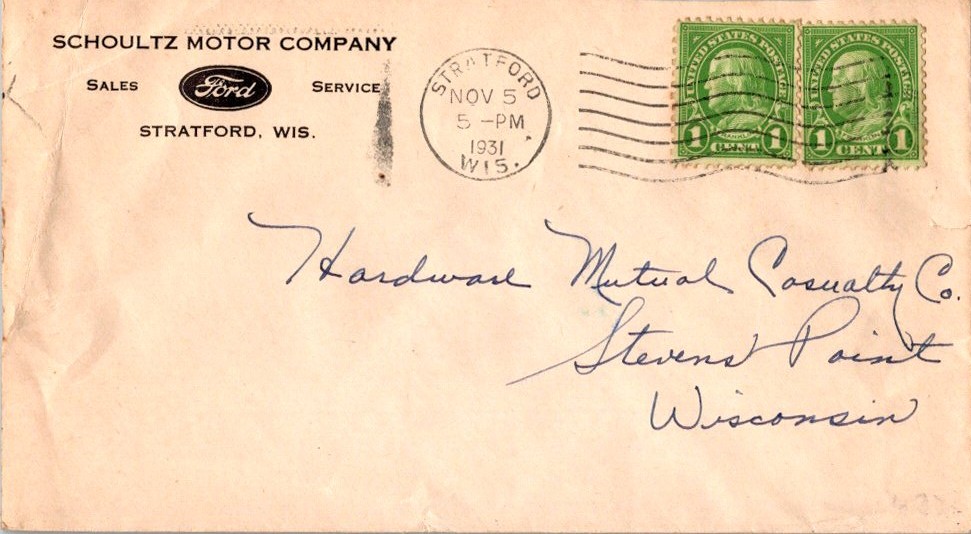 SCHOULTZ MOTOR COMPANY
SALES Ford SERVICE
STRATFORD, WIS.
STRATFORD
NOV 5
5 -PM
1931
WIS.
UNITED STATES POSTAGE
FRANKLIN
1 CENT 1
UNITED STATES POSTAGE
1 CENT 1
Hardware Mutual Casualty Co.
Stevens Point
Wisconsin